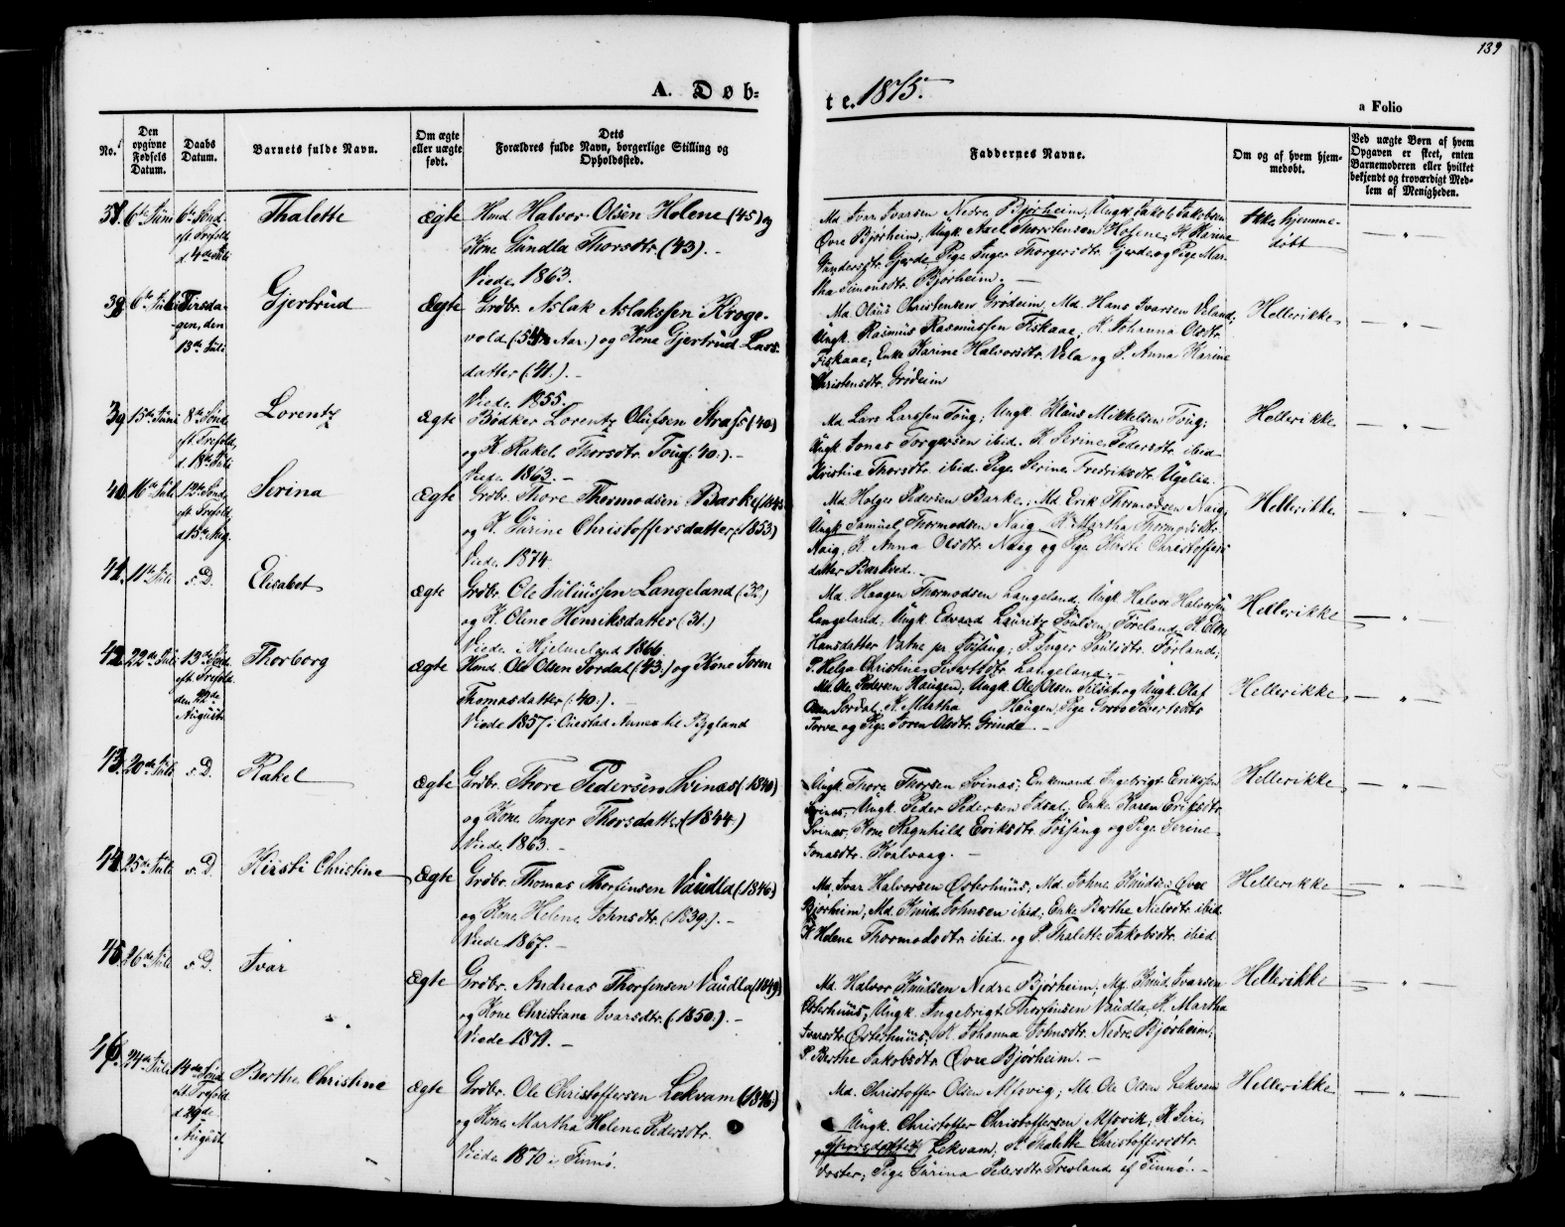 139
A. Døb-
te. 1875.
a Folio
No.
Den opgivne Fødsels Datum.
Daabs Datum.
Barnets fulde Navn.
Om ægte eller uægte født.
Dets Forældres fulde Navn, borgerlige Stilling og Opholdssted.
Faddernes Navne.
Om og af hvem hjemmedøbt.
Ved uægte Børn af hvem Opgaven er skeet, enten Barnemoderen eller hvilket bekjendt og troværdigt Medlem af Menigheden.
6te Juni
6te Sønd. eft. Trefoldh. d. 4de Juli
Thalette
Ægte
Hmd Halvor Olsen Holene (45) og
Kone Gundla Thorsdtr. (43). -
Viede 1863.
Md. Ivar Ivarsen Nedre Bjørheim, Ungk. Jakob Jakobsen
Øvre Bjørheim; Ungk. Axel Thorstensen Holene, K. Karine
Gundersdtr. Gjerde, Pige Inger Thorgersdtr. Gjerde og Pige Mar-
tha Simonsdtr. Bjørheim. -
Ikke hjemme-
døbt
38
6te Juli
Tirsda-
gen, den
13de Juli
Gjertrud
Ægte
Grdbr. Aslak Aslakssen Kroge-
vold (54 Aar.) og Kone Gjertrud Lars-
datter (41.). -
Viede 1855.
Md. Olaus Christensen Grødeim, Md. Hans Ivarsen Veland;
Ungk. Rasmus Rasmussen Fiskaae; K. Johanna Olsdtr.
Fiskaae; Enke Karine Halvorsdtr. Vela og P. Anna Karine
Christensdtr. Grødeim
Hellerikke
39
15de Juni
8de Sønd. eft. Trefoldh. d. 18de Juli
Lorentz
Ægte
Bødker Lorentz Olufsen (40)
og K. Rakel Thorsdtr. Toug (40.). -
Viede 1863. -
Md. Lars Larssen Toug; Ungk. Klaus Mikkelsen Toug;
Ungk. Jonas Torgersen ibid. K. Serine Pedersdtr. ibid.
Kristine Thorsdtr. ibid. Pige Serine Fredriksdtr. Ugelie.
Hellerikke
40
16de Juli
12te Sønd. eft. Trefoldh. d. 15de Aug.
Serina
Ægte
Grdbr. Thore Thormodsen Barke
og K. Gurine Christoffersdatter (1853)
Viede 1874.
Md. Holger Pedersen Barke, Md. Erik Thormodsen Naig,
Ungk. Samuel Thormodsen Naig, K. Martha Thormodsdtr.
Naig, K. Anna Olsdtr. Naig og Pige Kirsti Christoffers-
datter Barkved. -
Hellerikke
41
11te Juli
s. D.
Elisabet
Ægte
Grdbr. Ole Juliussen Langeland (32.)
og K. Oline Henriksdatter (31.)
Viede i Hjelmeland 1866.
Md. Haagen Thormodsen Langeland, Ungk. Halvor Halvorsen
Langeland, Ungk. Edvard Lauritz Poulsen Førland, K. Elen
Hansdatter Vatne pr. Jøsang, P. Inger Poulsdtr. Førland;
P. Helga Christine Sivertsdtr. Langeland. -
Hellerikke
42
22de Juli
13de Sønd. eft. Trefoldh. den 22de August
Thorborg
Ægte
Hmd. Ole Olsen Sordal (43.) og Kone Joren
Thomasdatter (40.). -
Viede 1857 i Annex til Bygland
Md. Ole Pedersen Haugen; Ungk. Ole Olsen og Ungk. Olaf
Olsen Sordal, K. Martha Haugen, Pige Sivertsdtr.
Torve og Pige Joren Olsdtr. Grinde. -
Hellerikke
43
20de Juli
s. D.
Rakel
Ægte
Grdbr. Thore Pedersen Svinæs (1840)
og Kone Inger Thorsdatter (1844.)
Viede 1863. -
Ungk. Thore Thorsen Svinæs; Enkemand Ingebrigt Eriksen
Svinæs, Ungk. Peder Pedersen Idsal; Enke Karen Eriksdtr.
Svinæs; Kone Ragnhild Eriksdtr. Jøsang og Pige Serine
Jonasdtr. Kvalvaag. -
Hellerikke
44
25de Juli
s. D.
Kirsti Christine
Ægte
Grdbr. Thomas Thorfinsen Vaudla (1846)
og Kone Helene Johnsdtr. (1839.). -
Viede 1867. -
Md. Ivar Halvorsen Østerhuus, Md. Johne Knudsen Øvre
Bjørheim, Md. Knud Johnsen ibid; Enke Berthe Nielsdtr. ibid.
K. Helene Thormodsdtr. ibid. og P. Thalette Jakobsdtr. ibid
Hellerikke
45
26de Juli
s. D.
Ivar
Ægte
Grdbr. Andreas Thorfinsen Vaudla (1849)
og Kone Christiane Ivarsdtr. (1850.). -
Viede 1871. -
Md. Halvor Knudsen Nedre Bjørheim; Md. Knud Ivarsen
Østerhuus, Ungk. Ingebrigt Thorfinsen Vaudla, K. Martha
Ivarsdtr. Østerhuus, K. Johanna Johnsdtr. Nedre Bjørheim;
P. Berthe Jakobsdtr. Øvre Bjørheim. -
Hellerikke
46
Juli
14de Sønd. eft. Trefold. d. 29de August
Berthe Christine
Ægte
Grdbr. Ole Christoffersen Lekvam (1846)
og Kone Martha Helene Pedersdtr.
Viede 1870 i Finnø.
Md. Christoffer Olsen Alsvig; Md. Ole Olsen Lekvam
Ungk. Christoffer Christoffersen Alsvik, K. Siri
Lekvam, K. Thalette Christoffersdtr.
Voster; Pige Gurina Pedersdtr. Trevland af Finnø. -
Hellerikke